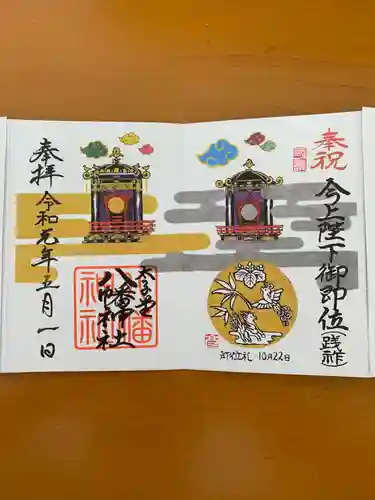 奉祝
今上陛下御即位(践祚)
御位礼 10月22日
太子堂
八幡神社
奉拝 令和元年五月一日